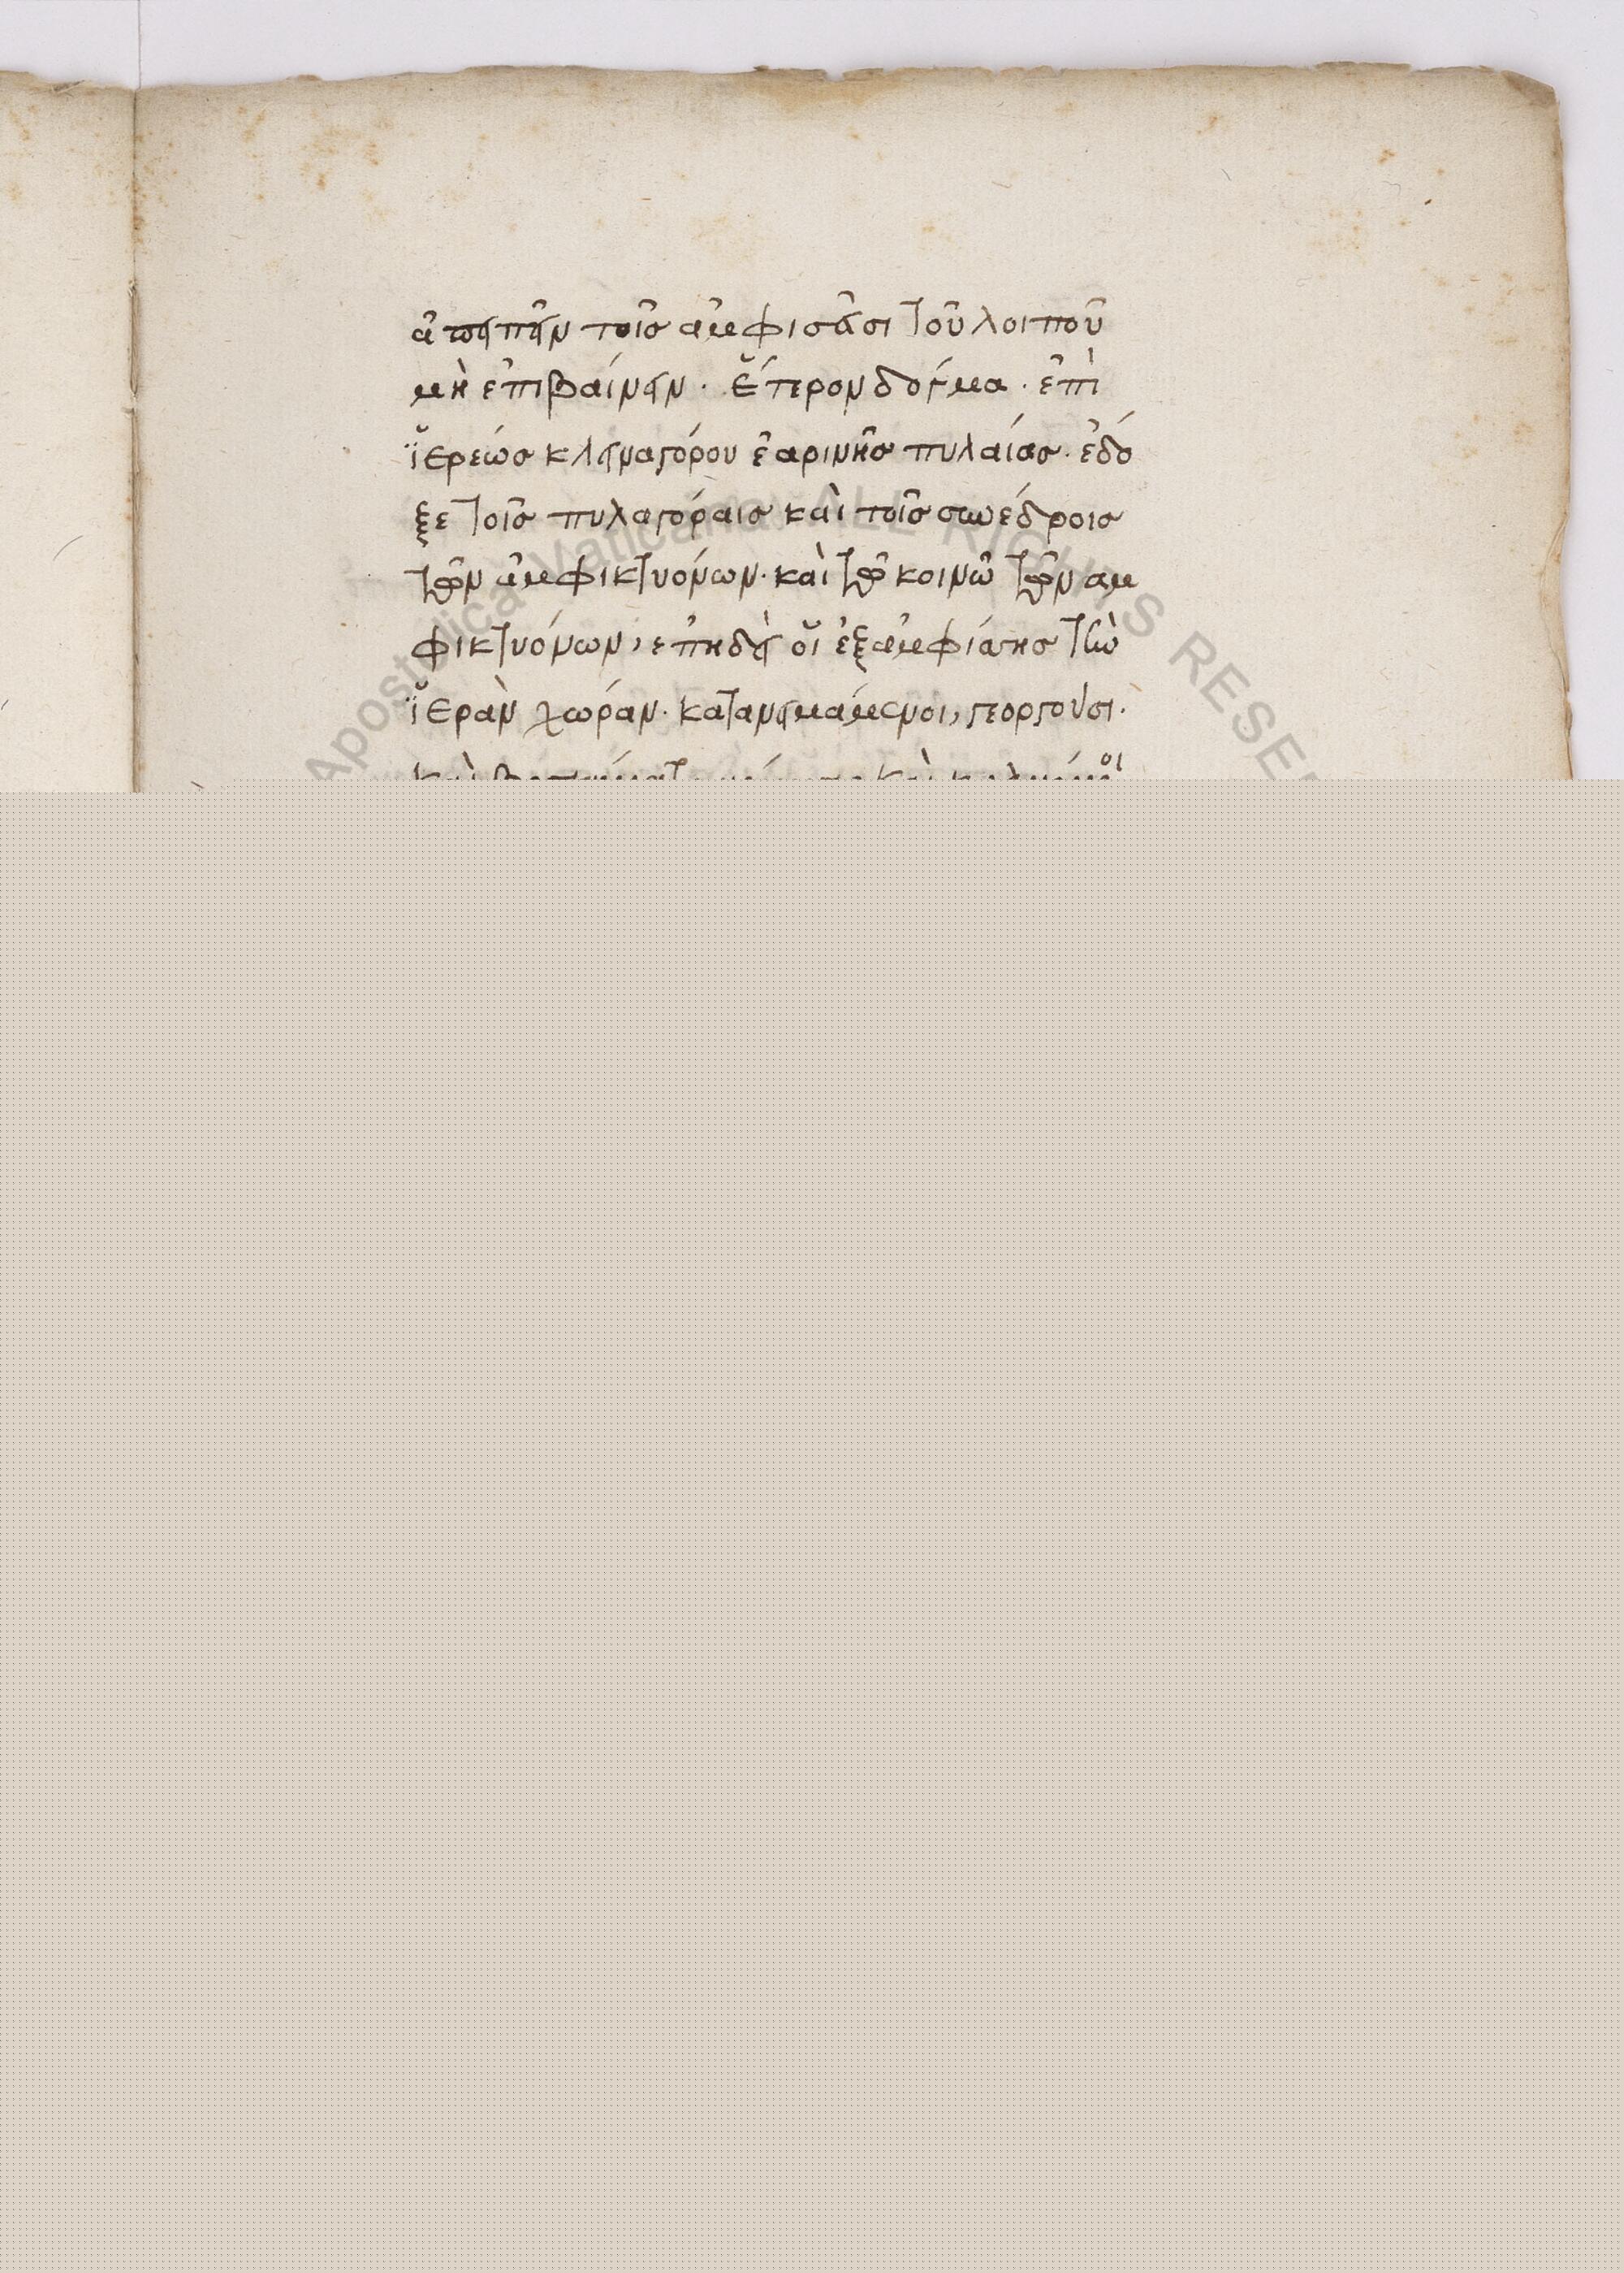 ἀπειπεῖν τοῖς ἀμφισᾶσι τοῦ λοιποῦ
μὴ ἐπιβαίνειν · ἕτερον δόγμα · ἐπὶ
ἱερεώς κλειναγόρου ἐαρινῆς πυλαίας · ἐδό
ξε τοῖς πυλαγόραις καὶ τοῖς συνέδροις
τῶν ἀμφικτυόνων · καὶ τῶ κοινῶ τῶν αμ
φικτυόνων, ἐπηδεὶ οἱ ἐξ ἀμφίσσης τὴν
ἱερὰν χωράν · κατανειμάμενοι, γεοργοῦσι ·
Apostolica Vaticana ALL RIGHTS RESE